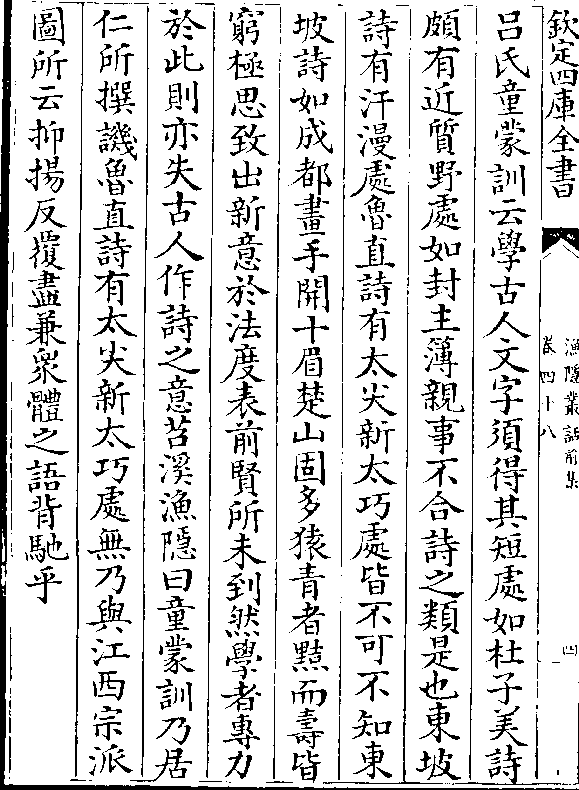 欽定四庫全書
漁隱叢話前集
卷四十八
四
吕氏童蒙訓云學古人文字須得其短處如杜子美詩
頗有近質野處如封主簿親事不合詩之類是也東坡
詩有汗漫處魯直詩有太尖新太巧處皆不可不知東
坡詩如成都畫手開十眉楚山固多猿青者黠而壽皆
窮極思致出新意於法度表前賢所未到然學者專力
於此則亦失古人作詩之意苕溪漁隱曰童蒙訓乃居
仁所撰譏魯直詩有太尖新太巧處無乃與江西宗派
圖所云抑揚反覆盡兼衆體之語背馳乎